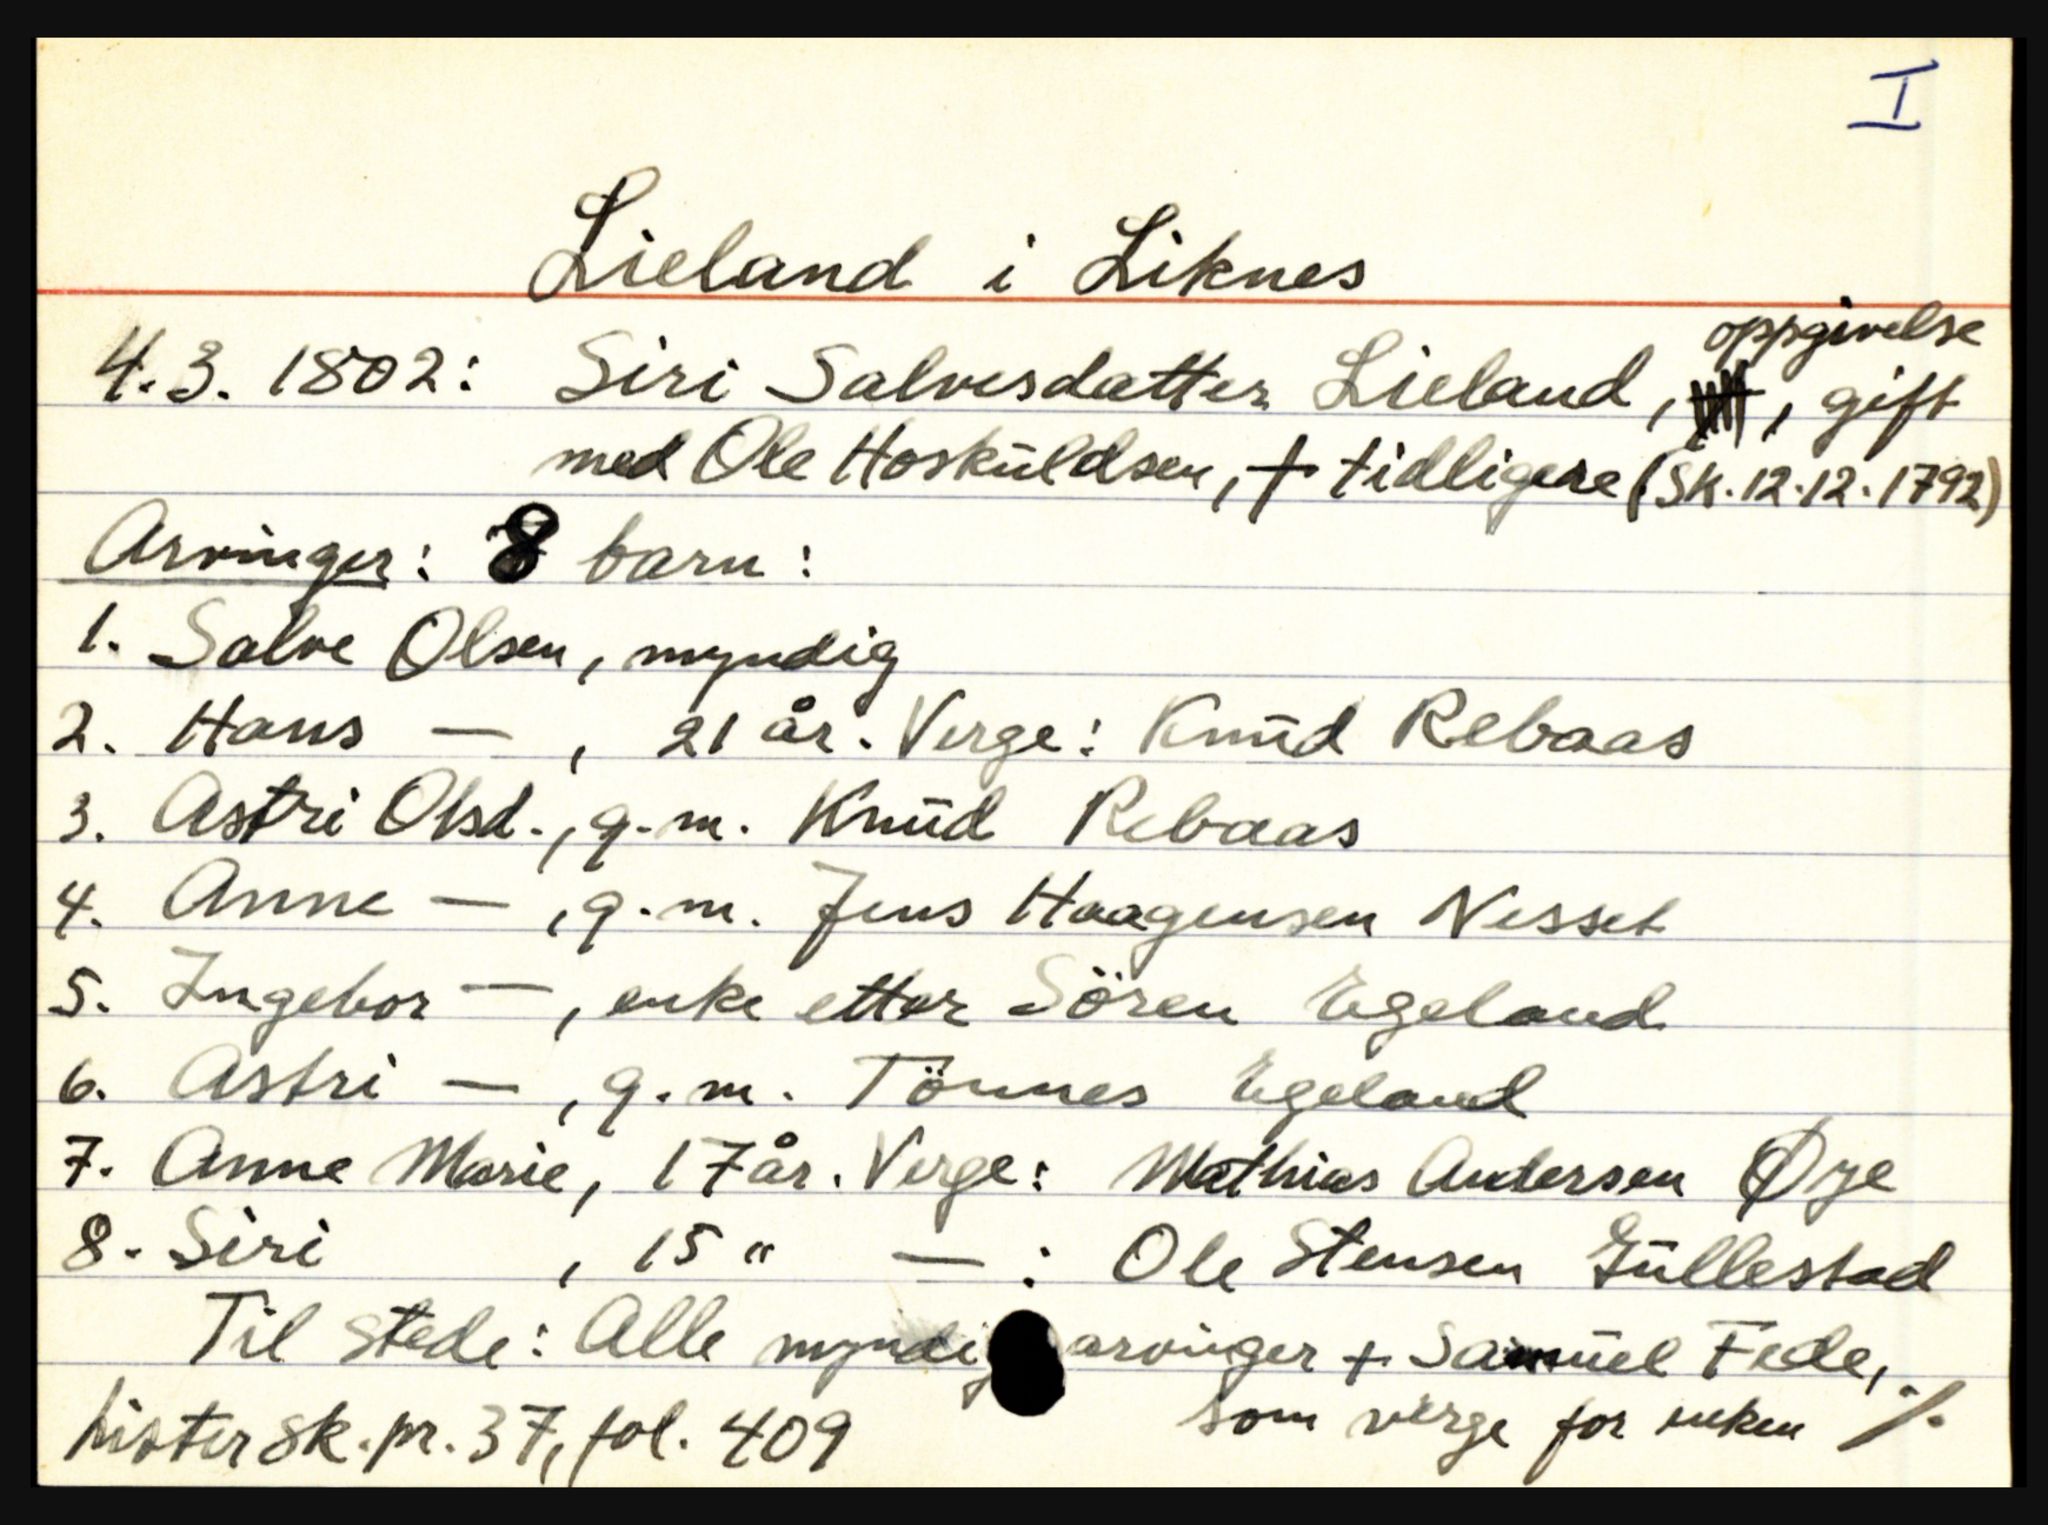 I
Lieland i Liknes
oppgivelse
4.3. 1802: Siri Salvesdatter Lieland, , gift
med Ole Hosküldsen, + tidligere (Sk. 12.12.1792)
Arvinger: 8 barn:
1. Salve Olsen, myndig
2. Hans — , 21 år. Verge: Knūd Rebaas
3. Astri Olsd., g.m. Knūd Rebaas
4. Anne — , g.m. Jens Haagensen Nesset
5. Ingebor — , enke etter Sören Egeland
6. Astri — , g.m. Tönnes Egeland
7. Anne Marie, 17 år. Verge: Mathias Andersen Øye
8. Siri , 15 " — : Ole Stensen Güllestad
Til stede: Alle myndig arvinger + Samūel Fede,
som verge for enken ·/.
Lister sk.pr. 37, fol. 409